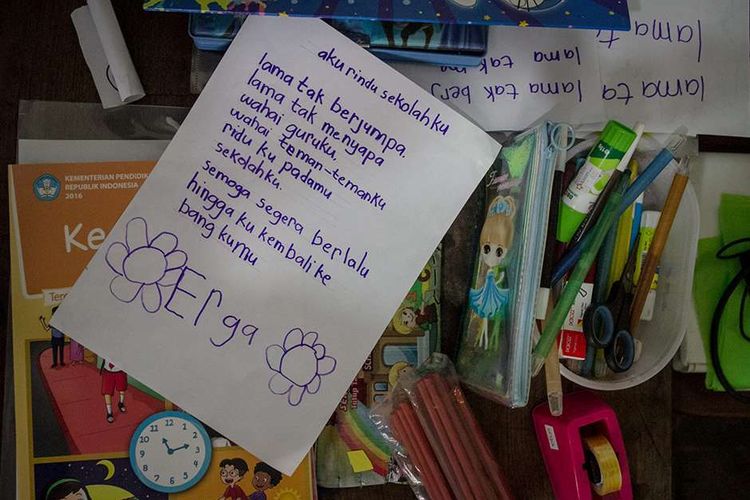 aku rindu sekolahku
lama tak berjumpa.
lama tak menyapa
wahai guruku,
wahai teman-temanku
ridu ku padamu
sekolahku.
semoga segera berlalu
hingga ku kembali ke
bang kumu
Erga
KEMENTERIAN PENDIDIK
REPUBLIK INDONESIA
2016
Ke
lama t
lama tak
lama tak berj
lama ta